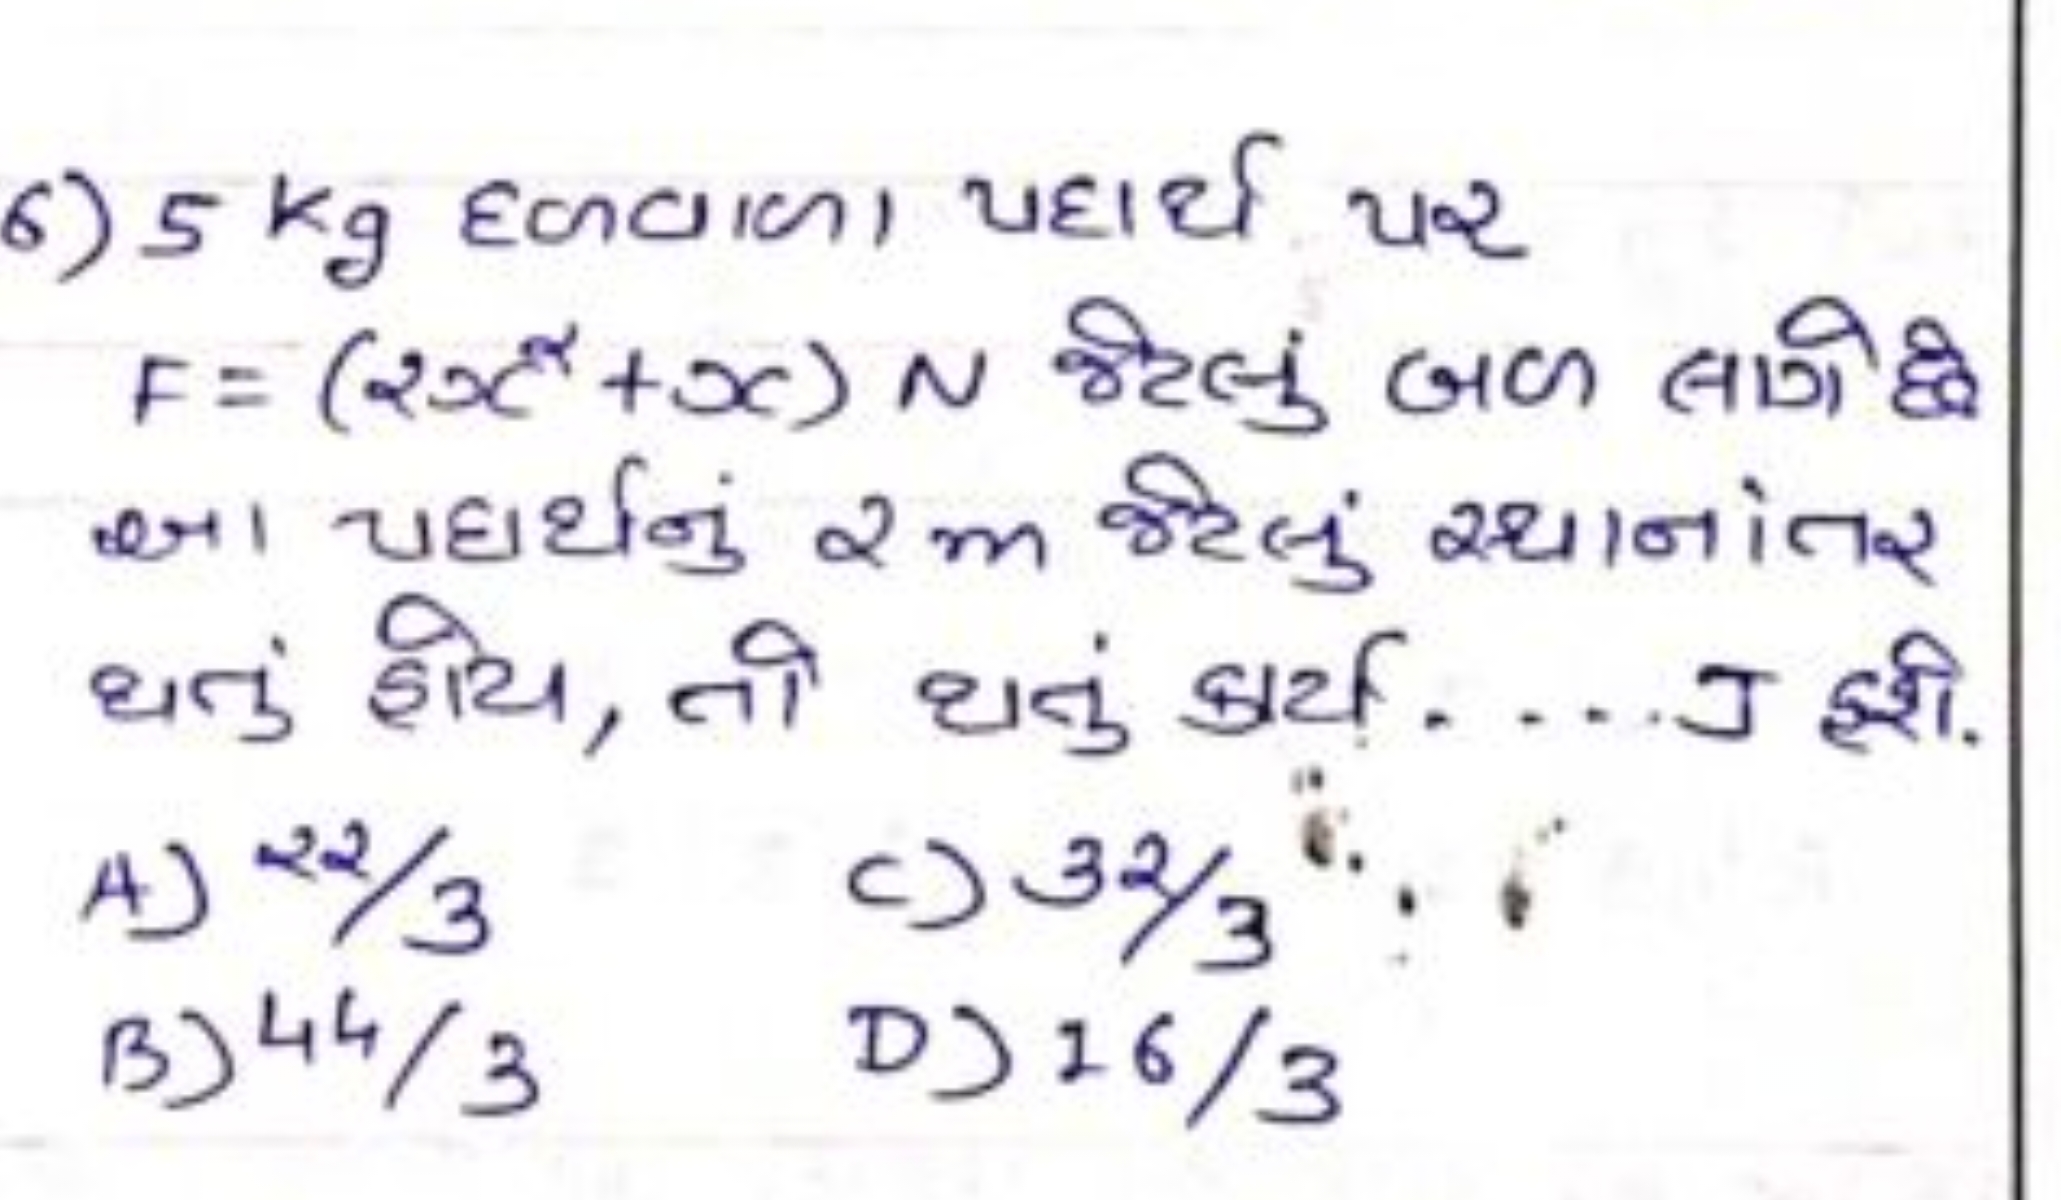 6) 5 kg દળવાળા પદાર્થ પર
F = (2x² + x) N જેટલું બળ લાગે છે
આ પદાર્થનું 2 m જેટલું સ્થાનાંતર
થતું હોય, તો થતું કાર્ય. . . . . J હશે.
A) 22/3 C) 32/3
B) 44/3 D) 16/3